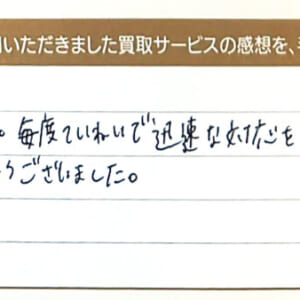 いただきました買取サービスの感想を、
。毎度ていねいで迅速な対応を
うございました。